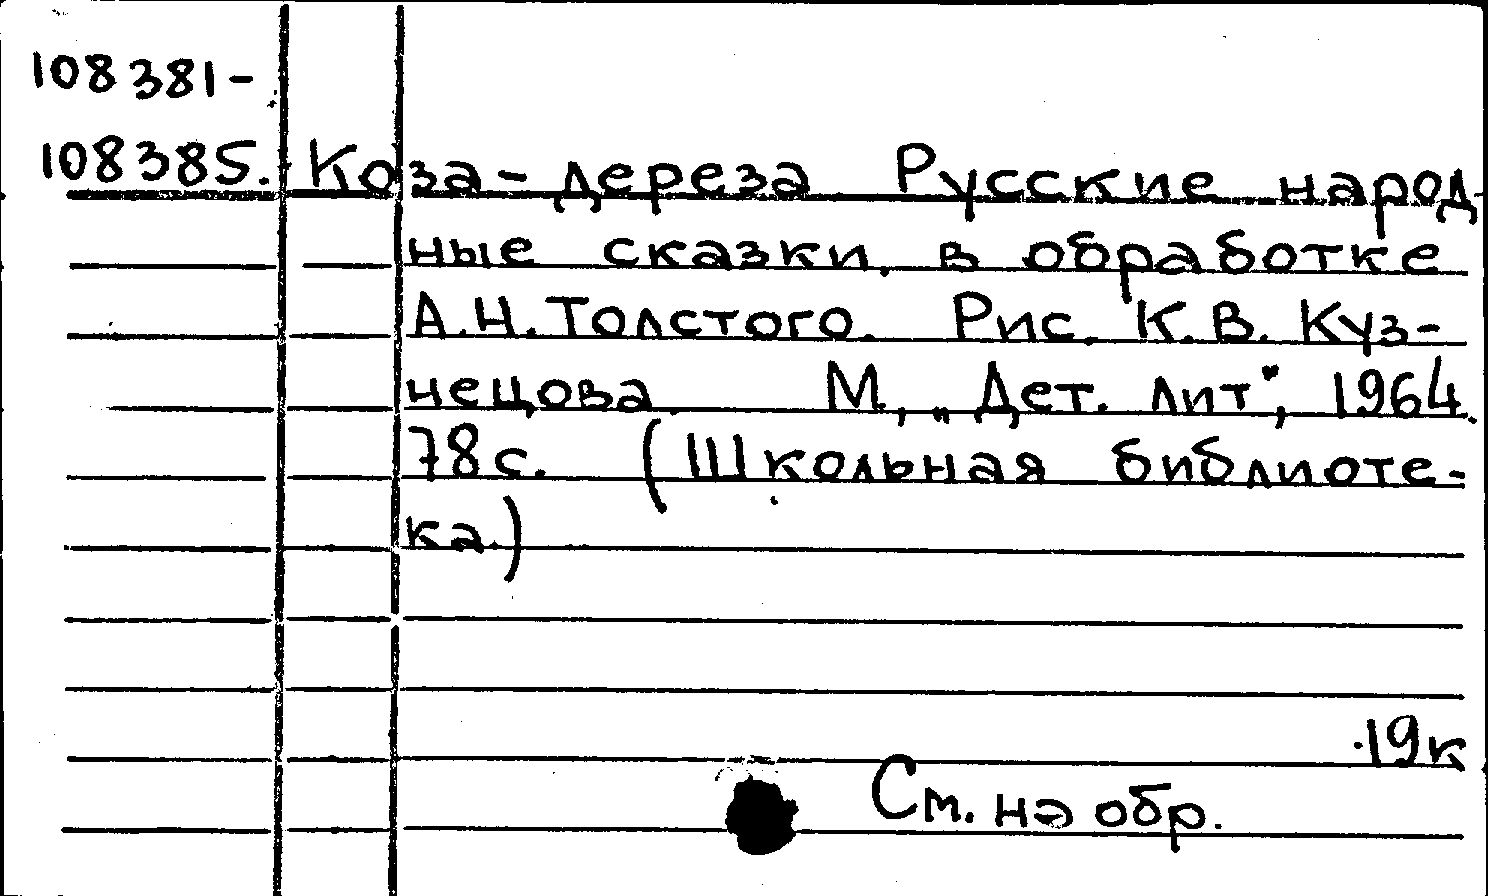 108381-
108385. Коза-дереза Русские народ
ные сказки. в обработке
А.Н.Толстого. Рис. К.В. Куз-
нецова. М., „Дет. лит", 1964.
78с. (Школьная библиоте-
ка.)
19к
См. на обр.